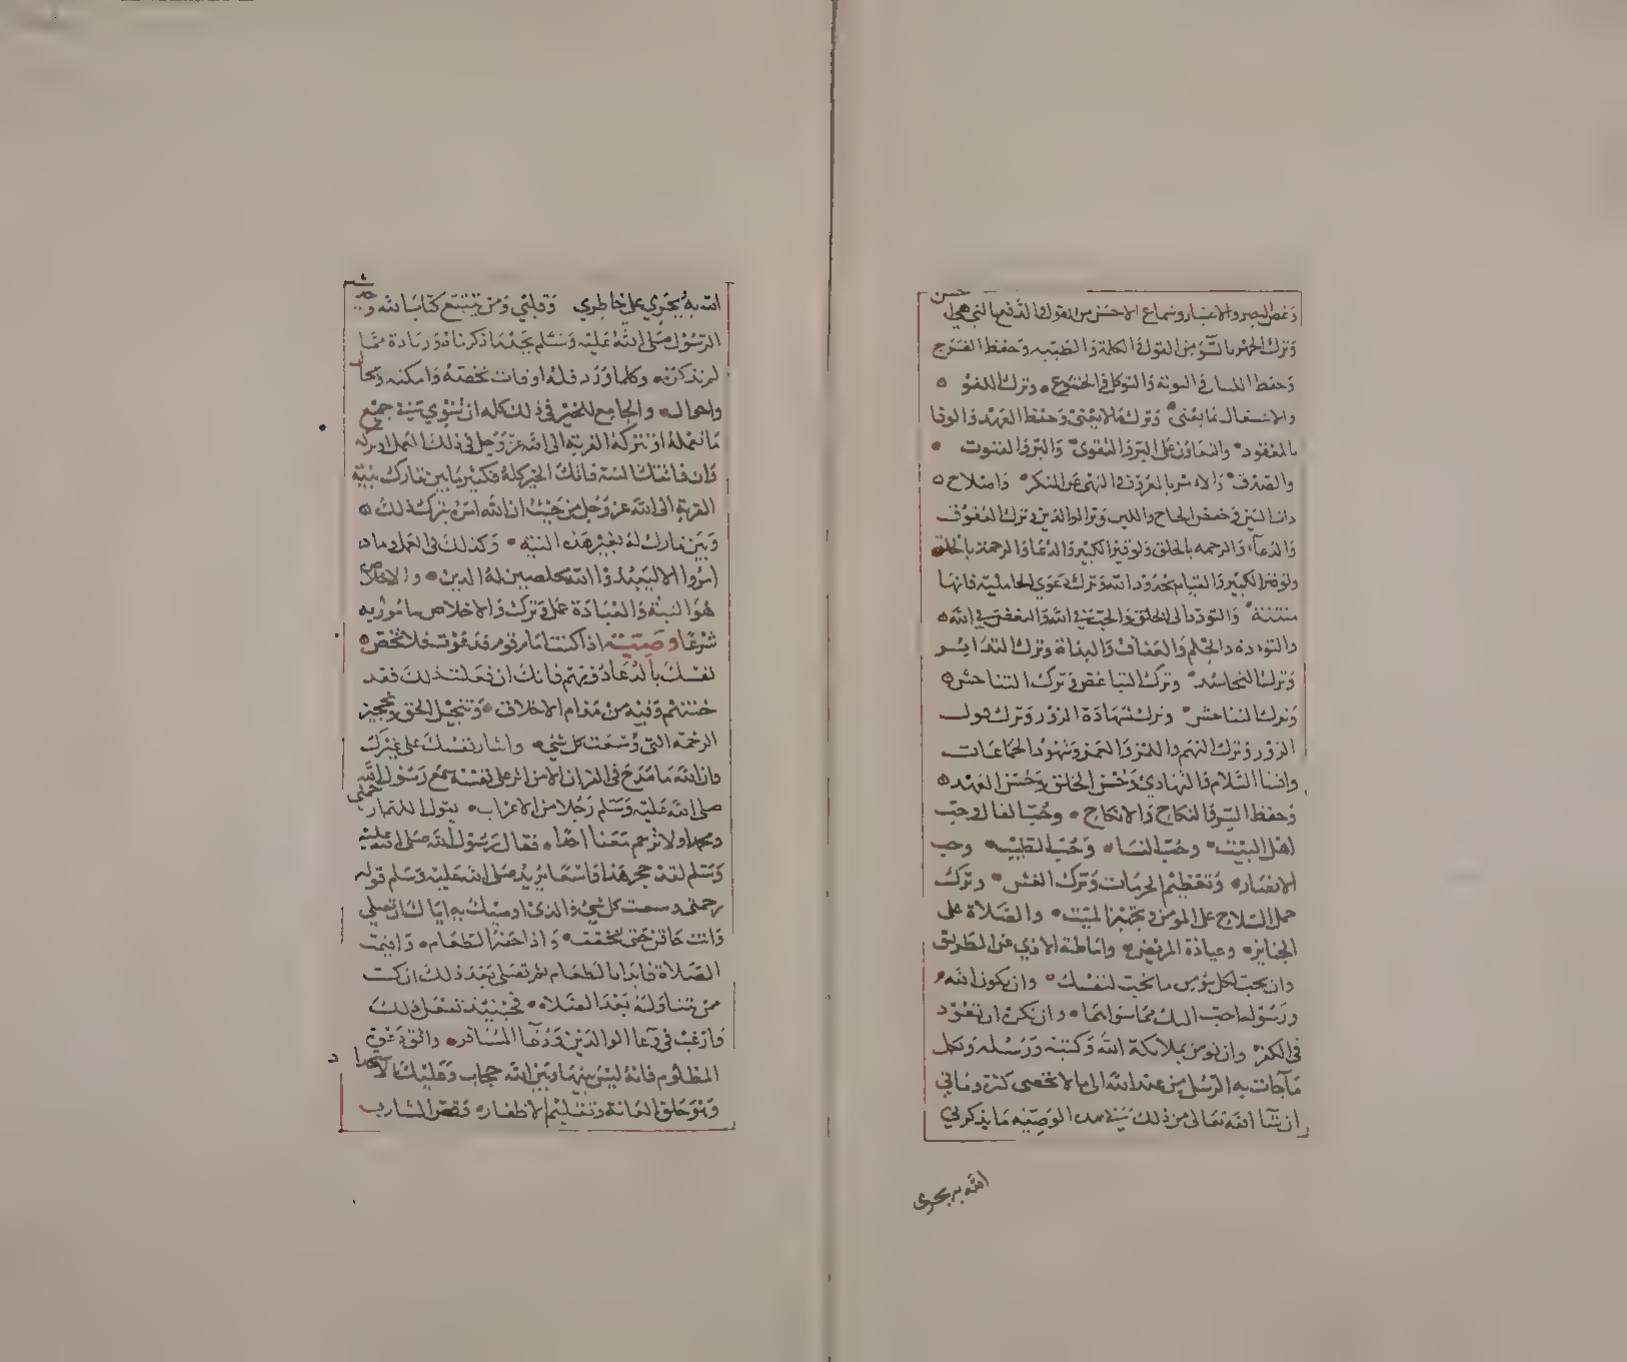 وغض البصر والاعتبار وسماع الاحسن من القول والدفع بالتي هي احسن
وترك الجهر بالسوء من القول والكلمة الطيبه وحفظ الفرج
وحفظ اللسان والتوبة والتوكل والخشوع وترك اللغو
والاشتغال بما يعني وترك ما لا يعني وحفظ العهد والوفا
بالعقود والتعاون على البر والتقوى والبر والقنوت
والصدق والامر بالمعروف والنهي عن المنكر واصلاح
ذات البين وخفض الجناح واللين وبر الوالدين وترك العقوق
والدعاء والرحمه بالخلق وتوقير الكبير والدعا والرحمة بالخلق
وتوقير الكبير والقيام بحدود الله وترك دعوى الجاهلية فانها
منتنة والتودد الى الخلق والحب في الله والبغض في الله
والتوءدة والحلم والعفاف والبذاذة وترك التدابر
وترك التحاسد وترك التباغض وترك التناجش
وترك التناجش وترك شهادة الزور وترك قول
الزور وترك الهمز واللمز والغمز وشهود الجماعات
وافشا السلام والتهادي وحسن الخلق وحسن العهد
وحفظ السر والنكاح والانكاح وحب الفال وحب
اهل البيت وحب النسا وحب الطيب وحب
الانصار وتعظيم الحرمات وترك الغش وترك
حمل السلاح على المومن وتجهيز الميت والصلاة على
الجنايز وعيادة المريض واماطة الاذي من الطريق
وان يحب لكل مومن ما تحب لنفسك وان يكون الله
ورسوله احب اليك مما سواهما وان تكره ان تعود
في الكفر وان تومن بملايكة الله وكتبه ورسله وبكل
ما جات به الرسل من عند الله الى ما لا تحصى كثرة وياتي
ان شا الله تعالى من ذلك في هذه الوصيه ما يذكرني
الله به يجرى
الله به يجري على خاطري وقلبي ومن يتتبع كتاب الله وحديث
الرسول صلى الله عليه وسلم يجد ما ذكرناه وزيادة مما
لم نذكره وكلما ورد فله اوقات تخصه وامكنه ومحال
واحوال والجامع للخير في ذلك كله ان تنوي نية جميع
ما تعمله او تتركه القربة الى الله عز وجل في ذلك العمل او تركه
وان فاتتك النية فاتك الخير كله فكثير ما بين تارك بنية
القربة الى الله عز وجل من حيث ان الله امره بترك ذلك
وبين تارك له بغير هذه النية وكذلك في العمل وما
امروا الا ليعبدوا الله مخلصين له الدين والاخلاص
هو النية والعبادة عمل وترك والاخلاص مامور به
شرعا وصية اذا كنت امام قوم فدعوت فلا تخص
نفسك بالدعا دونهم فانك ان فعلت ذلك فقد
خنتهم وفيه من مذام الاخلاق وتبخيل الحق وتحجير
الرحمة التي وسعت كل شي وايثار نفسك على غيرك
وان الله ما مدح في القران الا من اثر على نفسه سمع رسول الله
صلى الله عليه وسلم رجلا من الاعراب يقول اللهم ارحمني
ومحمدا ولا ترحم معنا احدا فقال رسول الله صلى الله عليه
وسلم لقد حجر هذا واسعا يريد صلى الله عليه وسلم قوله
رحمتي وسعت كل شي والذي اوصيك به اياك ان تصلي
وانت حاقن حتى تخفف واذا حضر الطعام واقيمت
الصلاة فابدا بالطعام ثم تصلي بعد ذلك ان كنت
ممن تتناوله بعد الصلاه فحينيذ تفعل ذلك
وارغب في دعا الوالدين ودعا المسافر واتق دعوة
المظلوم فانه ليس بينها وبين الله حجاب وعليك بالاستحداد
وهو حلق العانة وتقليم الاظفار وقص الشارب